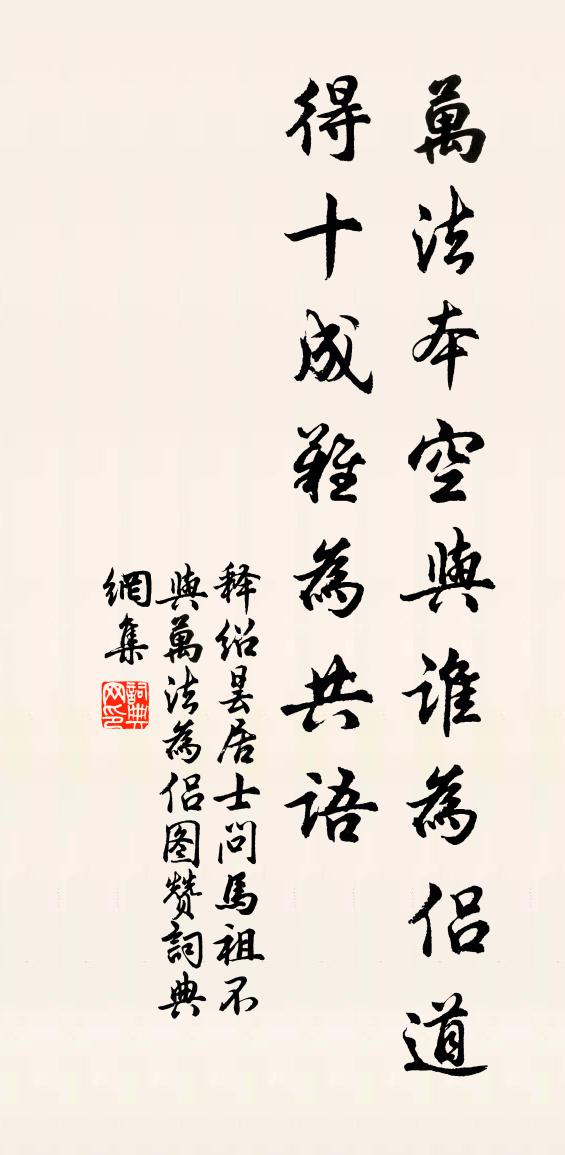 萬法本空與誰為侶道
得十成難為共語
释绍昙居士問馬祖不
與萬法為侣图赞詞典
網集
詞典
网印